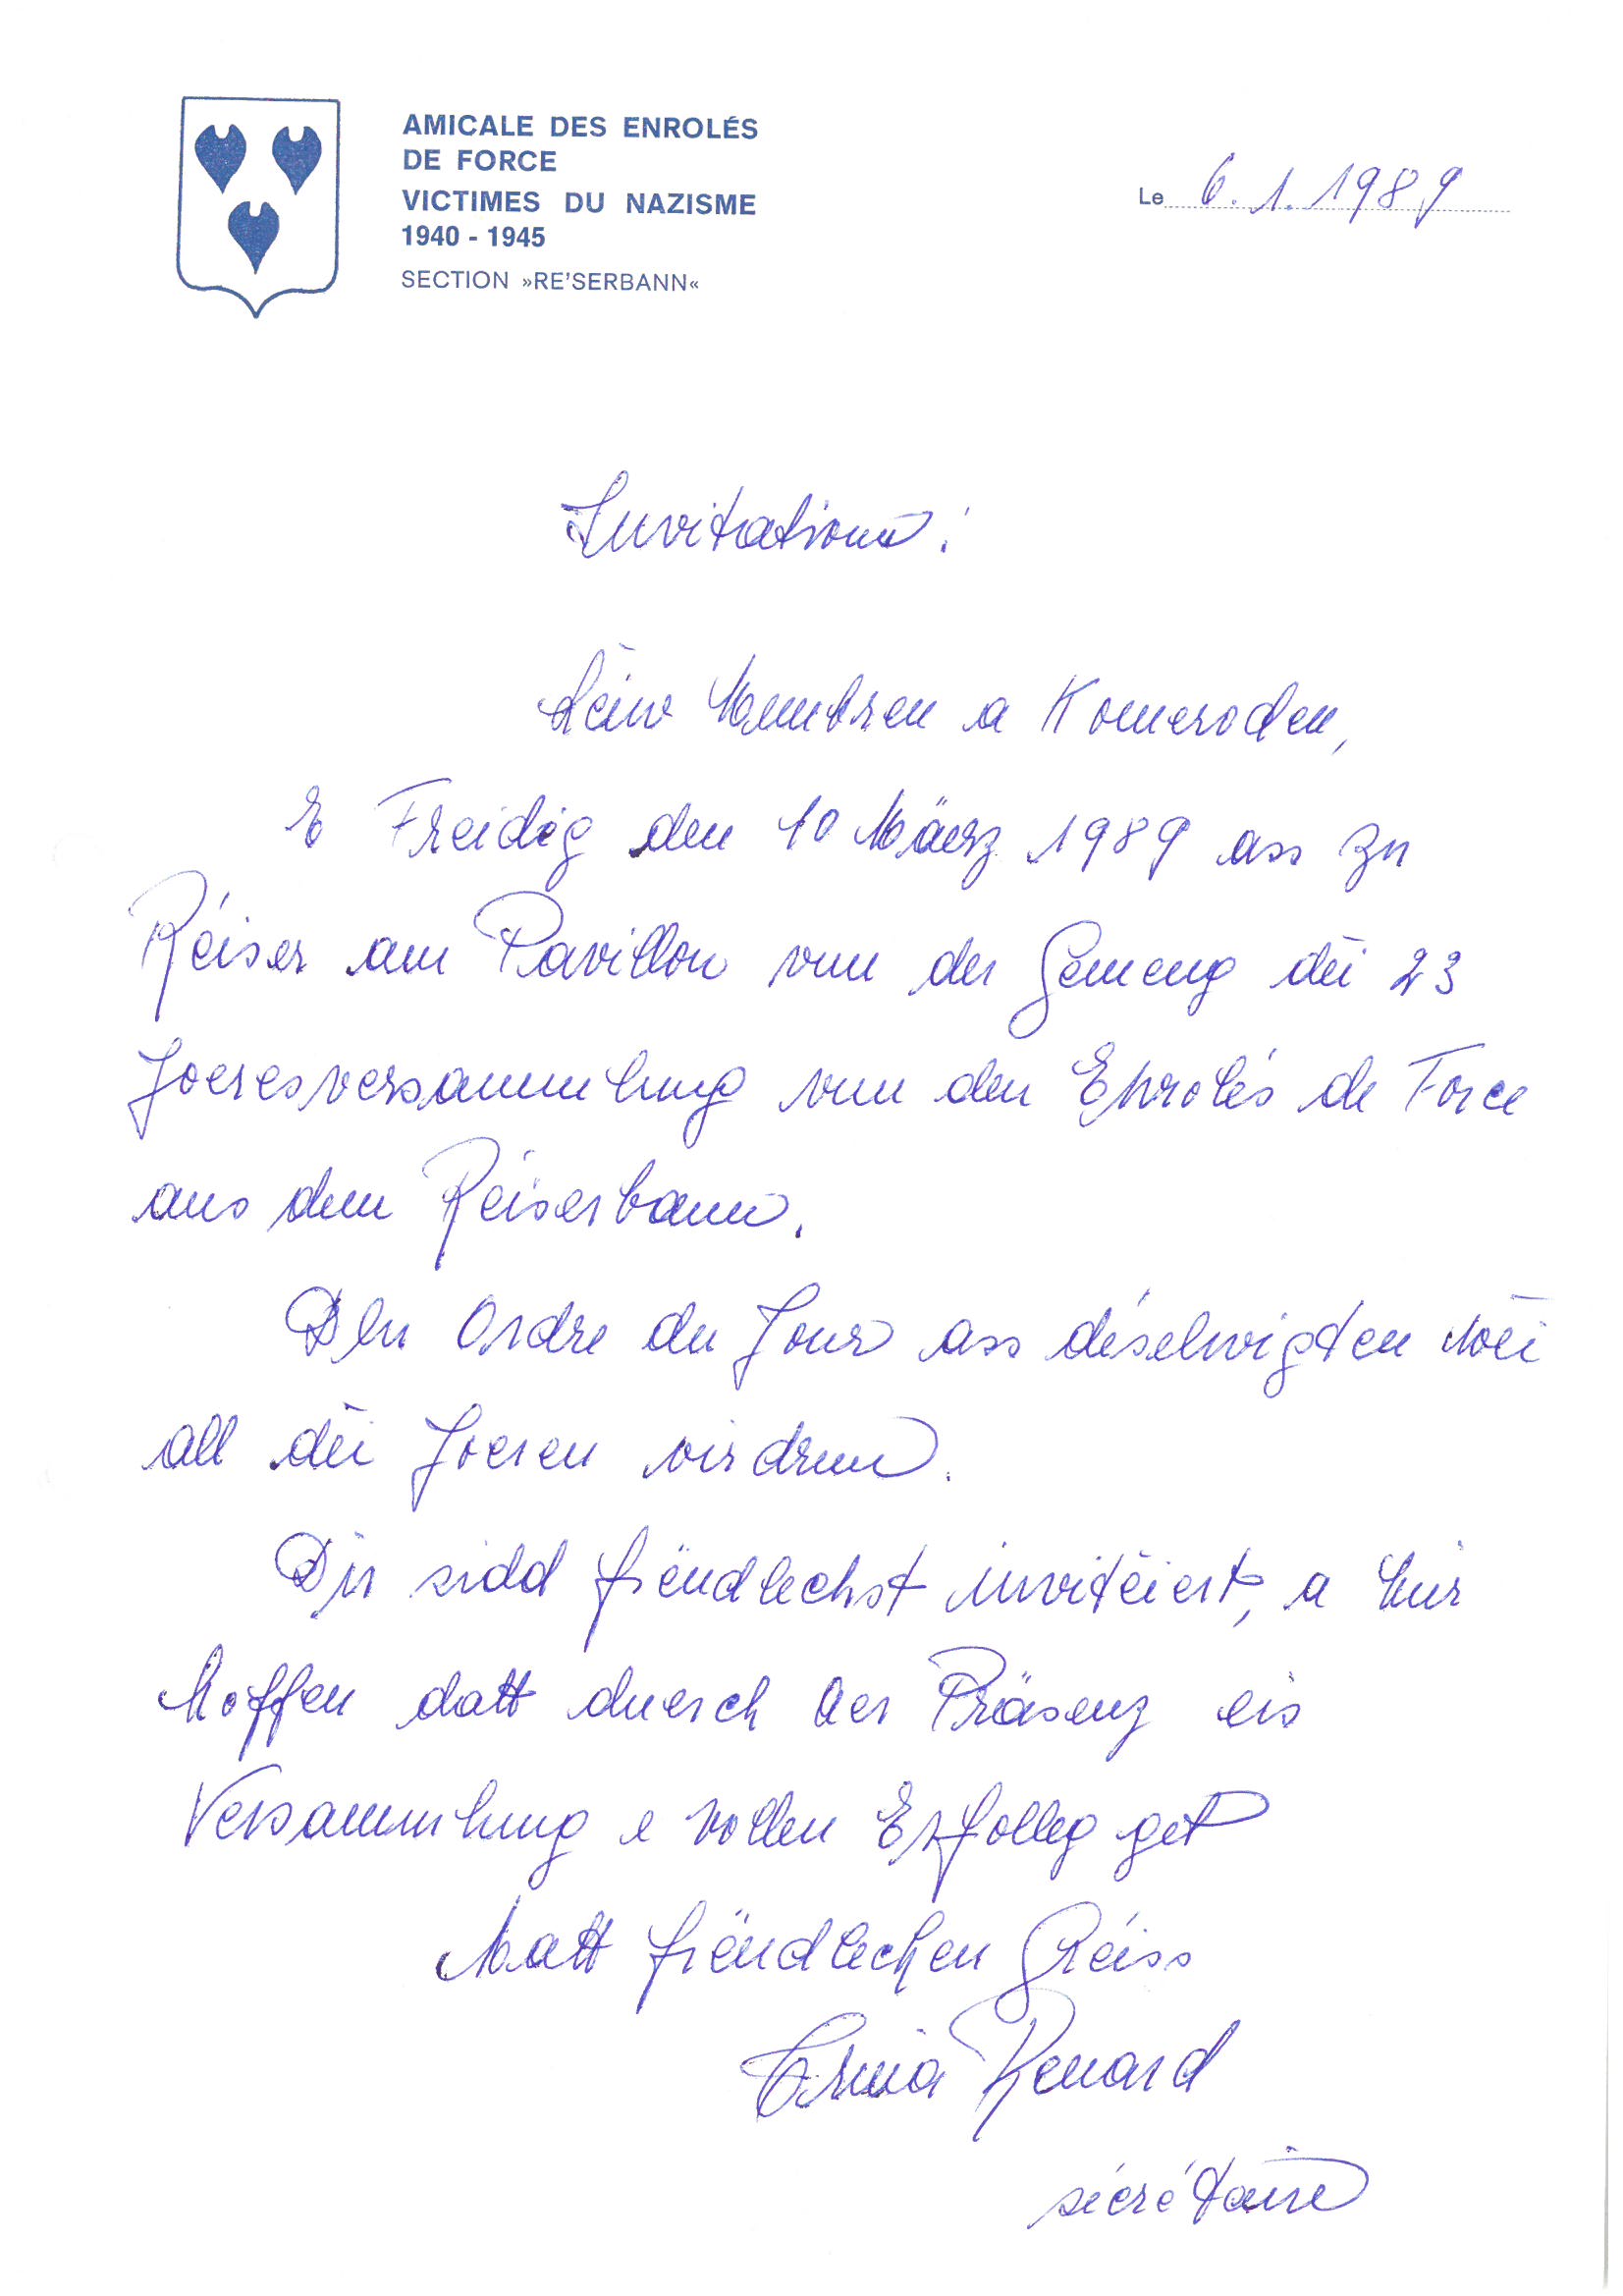 AMICALE DES ENROLÉS
DE FORCE
VICTIMES DU NAZISME
1940 - 1945
SECTION »RE'SERBANN«
Le 6.1.1989
Invitatioun:
Léiw Membren a Komeroden,
E Freideg den 10 Mäerz 1989 ass zu
Réiser am Pavillon vun der Gemeng déi 23
Joeresversammlung vun den Enrolés de Force
aus dem Réiserbann.
Den Ordre du Jour ass déselwigten wéi
all déi Joeren virdrun.
Dir sidd frëndlechst invitéiert, a mir
hoffen datt duerch Aer Präsenz eis
Versammlung e vollen Erfolleg get
Matt frëndlechen Gréiss
Renard
sécrétaire